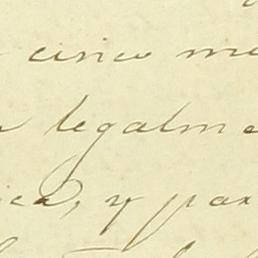 cinco me
legalme
ica, y par